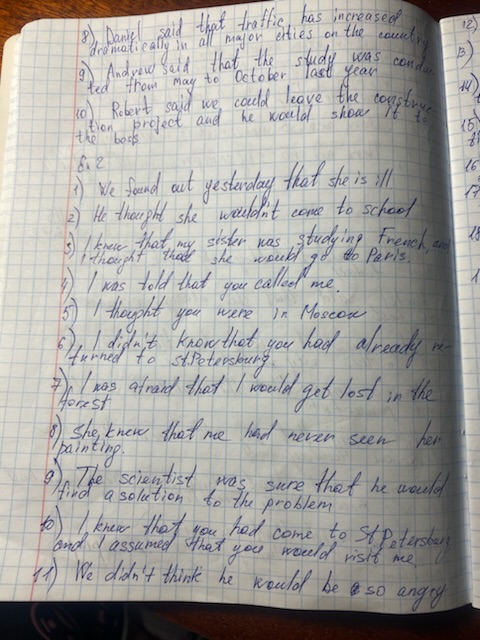 8) Daniel said that traffic has increased
dramatically in all major cities on the country
9) Andrew said that the study was conduc
ted from May to October last year
10) Robert said we could leave the construc
tion project and he would show it to
the boss
Ex 2
1) We found out yesterday that she is ill
2) He thought she wouldn't come to school
3) I knew that my sister was studying French, and
I thought that she would go to Paris.
4) I was told that you called me.
5) I thought you were in Moscow
6) I didn't know that you had already re-
turned to St.Petersburg.
7) I was afraid that I would get lost in the
forest
8) She knew that me had never seen her
painting.
9) The scientist was sure that he would
find a solution to the problem
10) I knew that you had come to St Petersburg
and I assumed that you would visit me
11) We didn't think he would be so angry
12)
13)
14)
15)
16
17
18
1